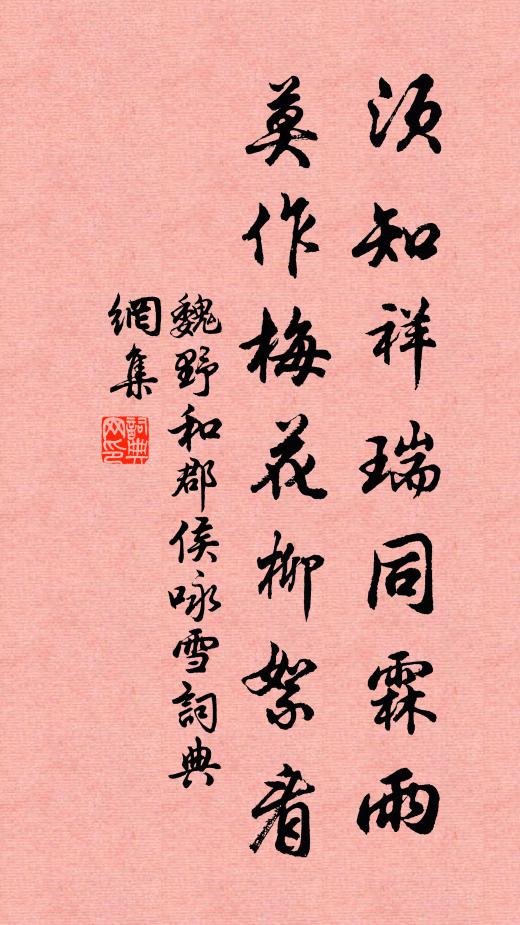 須知祥瑞同霖雨
莫作梅花柳絮看
魏野和郡侯咏雪詞典
網集
詞典
网印